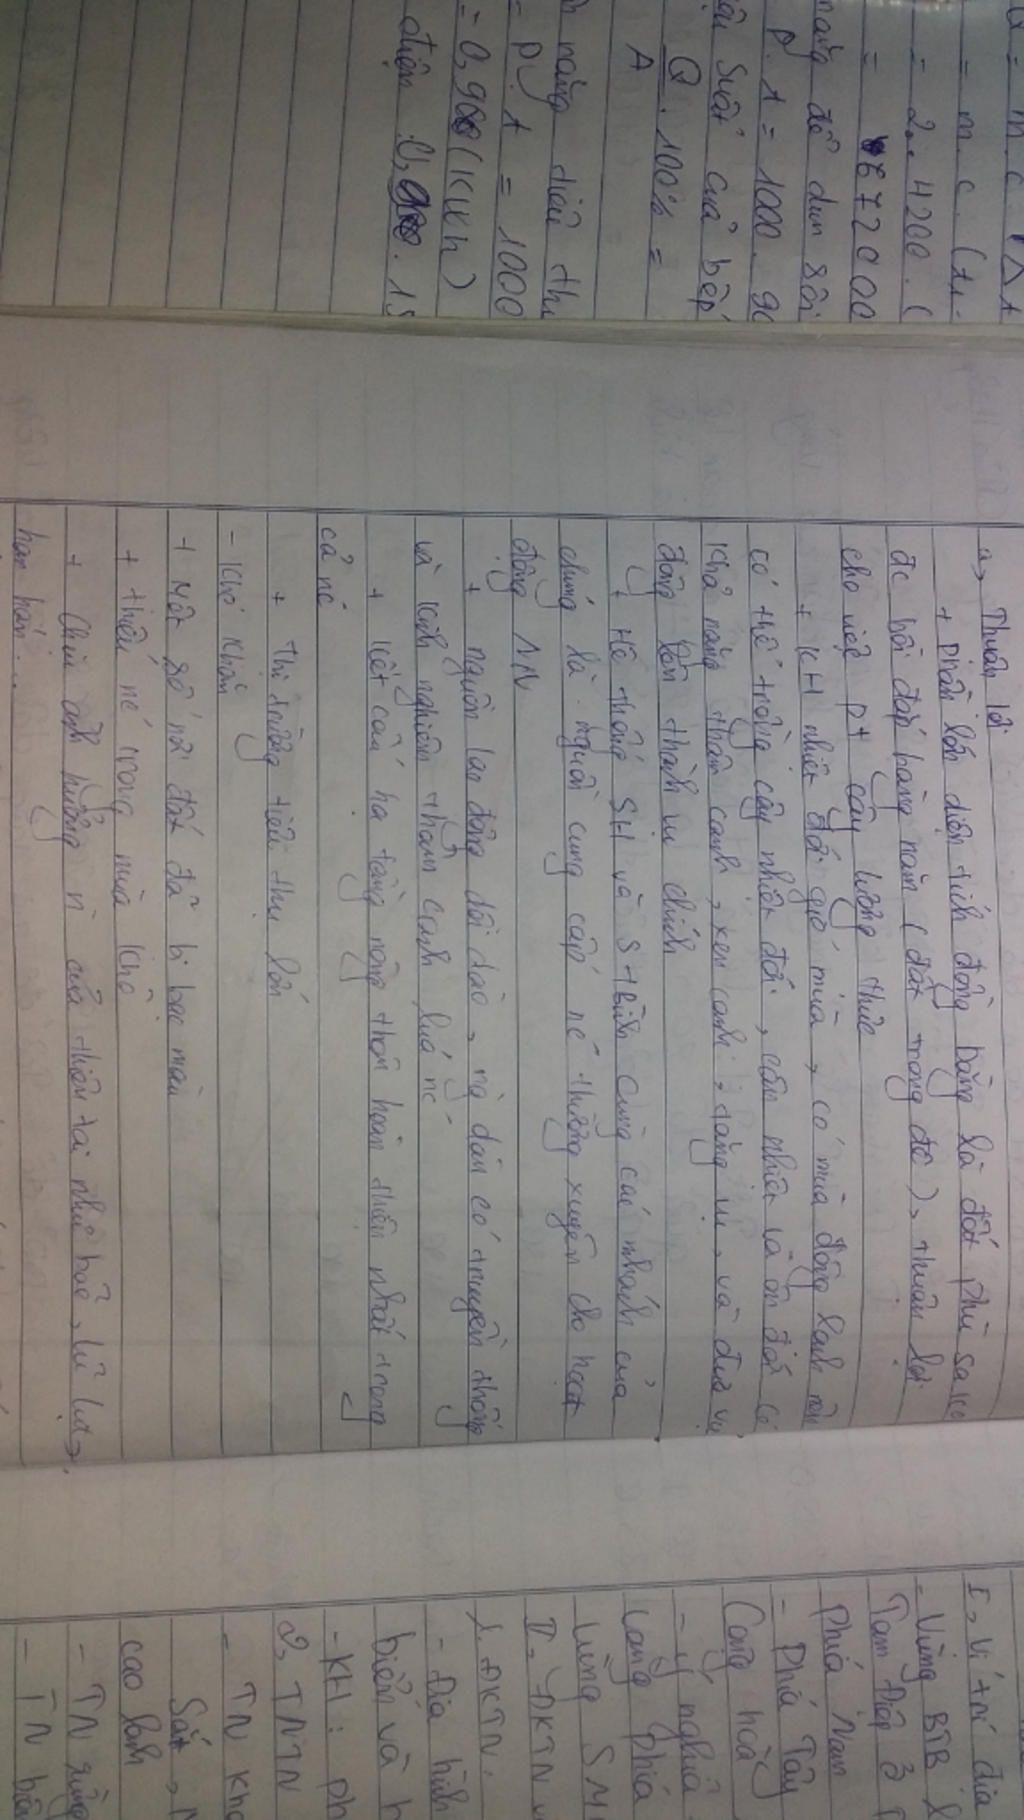 Q = m.c.Δt
= m.c.(t1-
= 2.4200.(
= 672000
năng để đun sôi
P.t = 1000.90
suất của bếp
Q/A . 100% =
năng tiêu thụ
= P.t = 1000
= 0,9 (KWh)
điện
a, Thuận lợi
+ phần lớn diện tích đồng bằng là đất phù sa
đc bồi đắp hàng năm (đất trong đê), thuận lợi
cho việc pt cây lương thực
+ KH nhiệt đới gió mùa, có mùa đông lạnh nên
có thể trồng cây nhiệt đới, cận nhiệt và ôn đới. Có
khả năng thâm canh, xen canh, tăng vụ, và đưa vụ
đông lên thành vụ chính
+ Hệ thống SH và S TBình cùng các nhánh của
chúng là nguồn cung cấp nc thường xuyên cho hoạt
động NN
+ nguồn lao động dồi dào, ng dân có truyền thống
và kinh nghiệm thâm canh lúa nc
+ kết cấu hạ tầng nông thôn hoàn thiện nhất trong
cả nc
+ thị trường tiêu thụ lớn
- Khó khăn
+ Một số nơi đất đã bị bạc màu
+ thiếu nc trong mùa khô
+ Chịu ảnh hưởng n của thiên tai như bão, lũ lụt,
hạn hán...
I, Vị trí địa
- Vùng BTB
Tam Điệp
Phía Nam
- Phía Tây
Cộng hòa
- ý nghĩa
Lang phía
vùng
II, ĐKTN
1. ĐKTN:
- Địa hình
biển và
- KH: ph
2, TNTN
- TN kho
Sắt,
cao lanh
- TN rừng
- TN biển